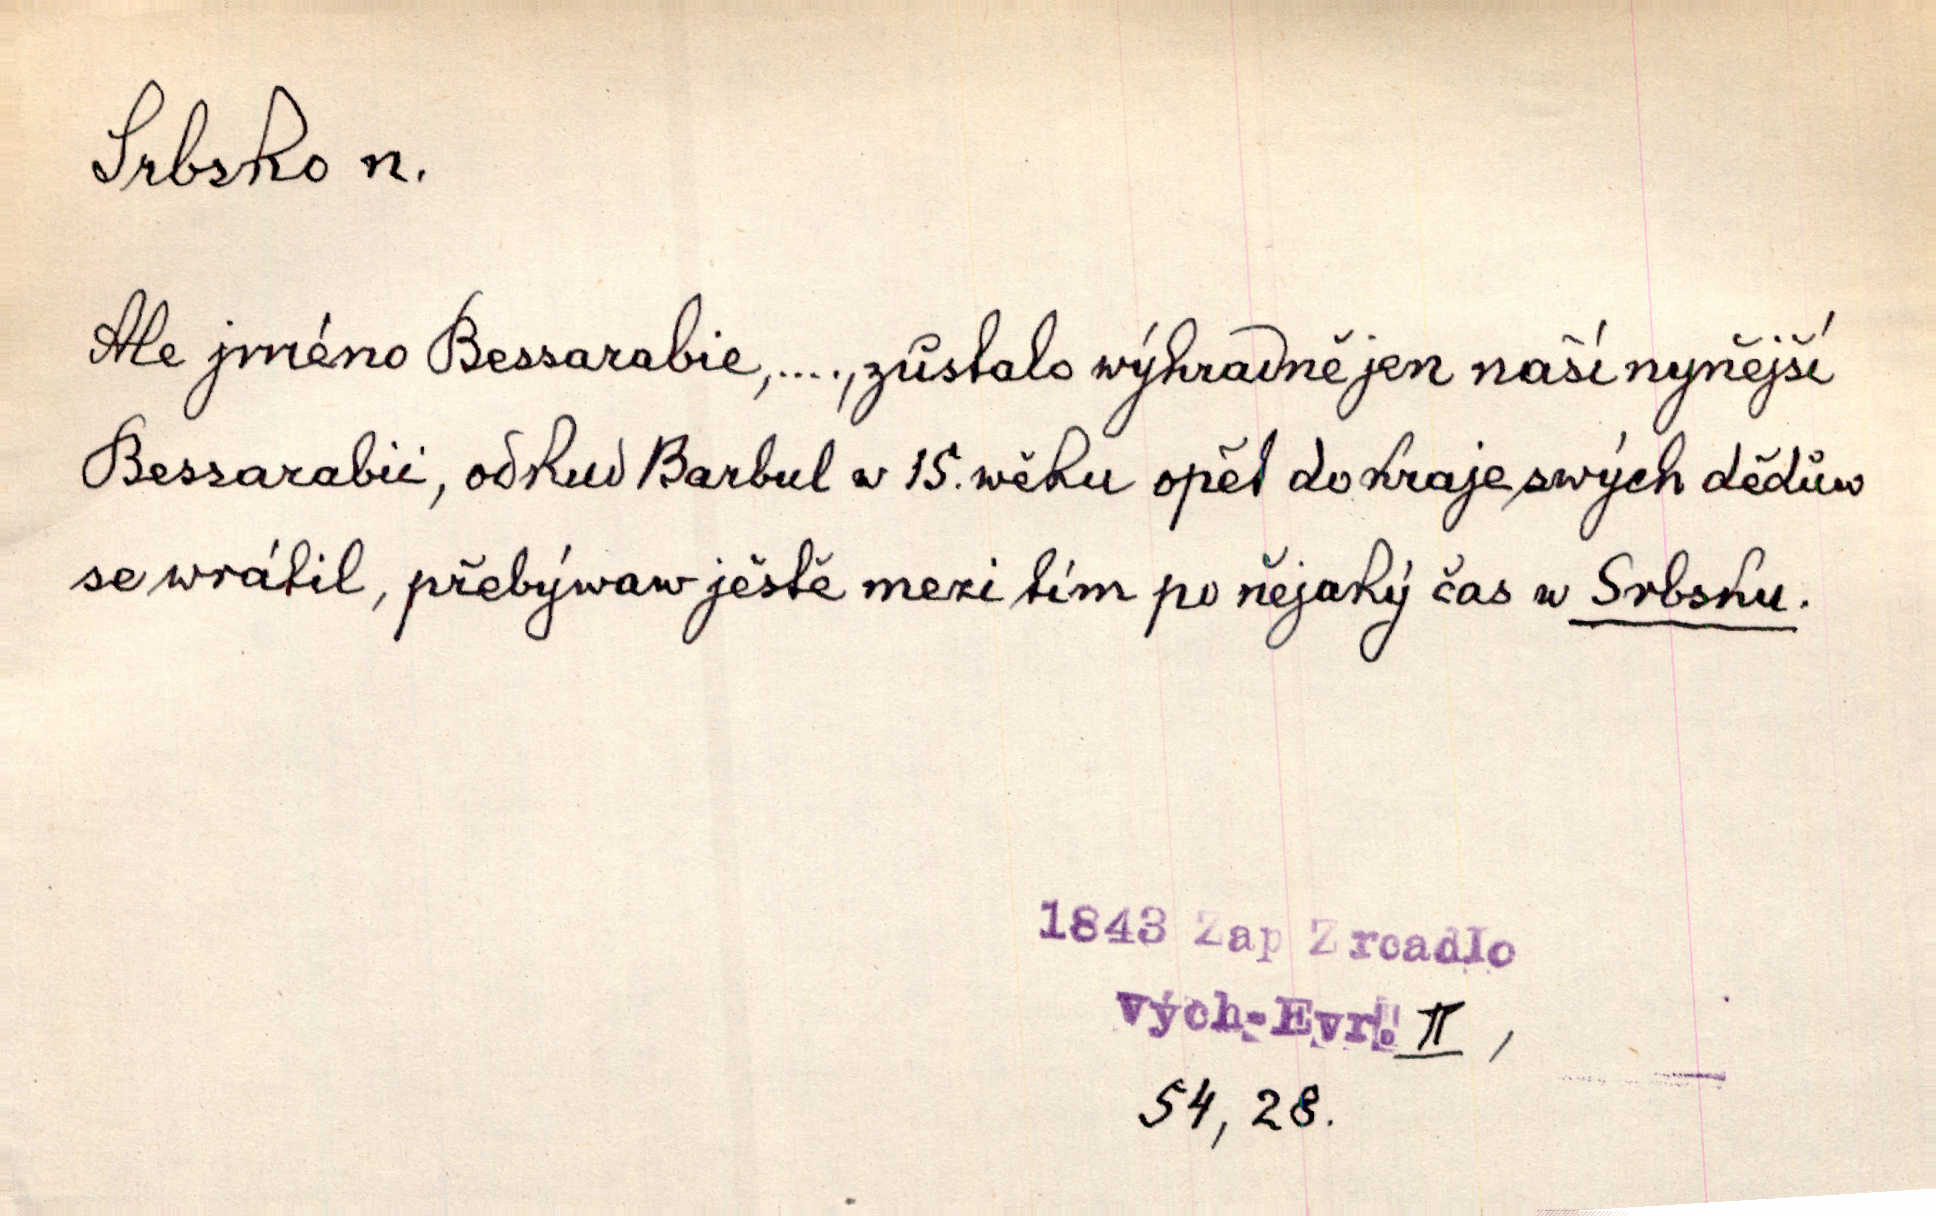 Srbsko n.
Ale jméno Bessarabie,....,zůstalo wýhradně jen naší nynější
Bessarabii, odkud Barbul w 15. wěku opět do kraje swých dědůw
se wrátil, přebýwaw ještě mezi tím po nějaký čas w Srbsku.
1843 Zap Zrcadlo
Vých-Evr. II,
54, 28.